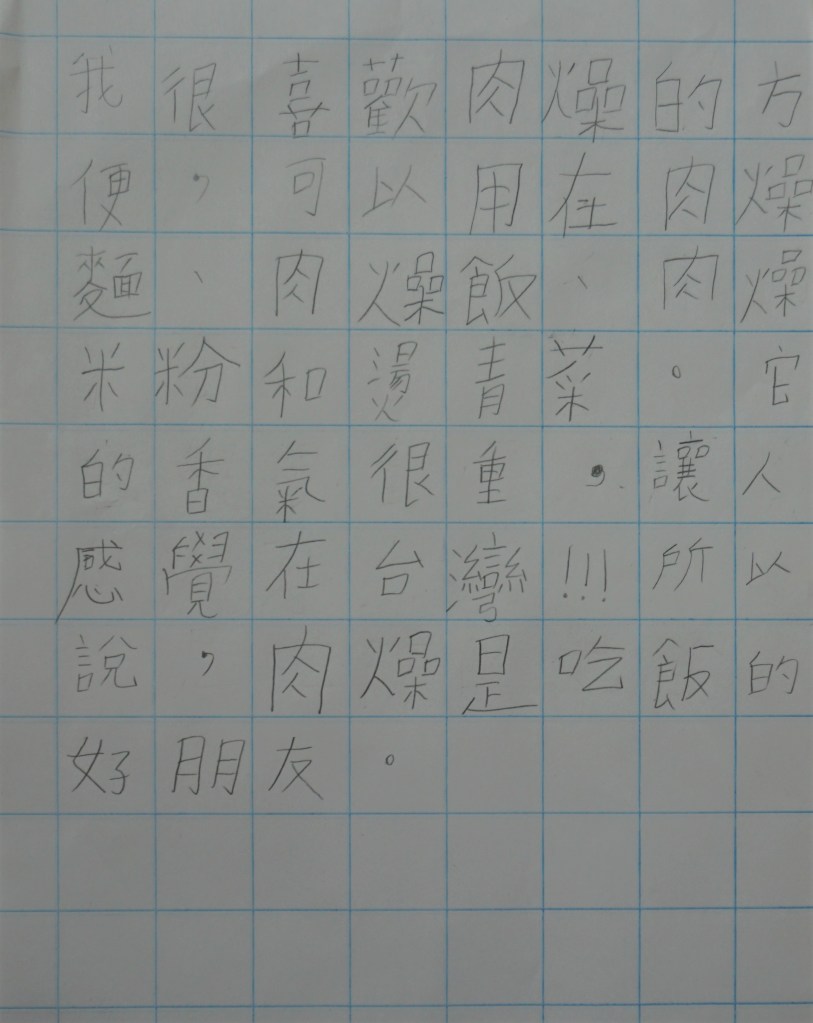 我很喜歡肉燥的方
便，可以用在肉燥
麵、肉燥飯、肉燥
米粉和燙青菜。它
的香氣很重，讓人
感覺在台灣!!!所以
說，肉燥是吃飯的
好朋友。